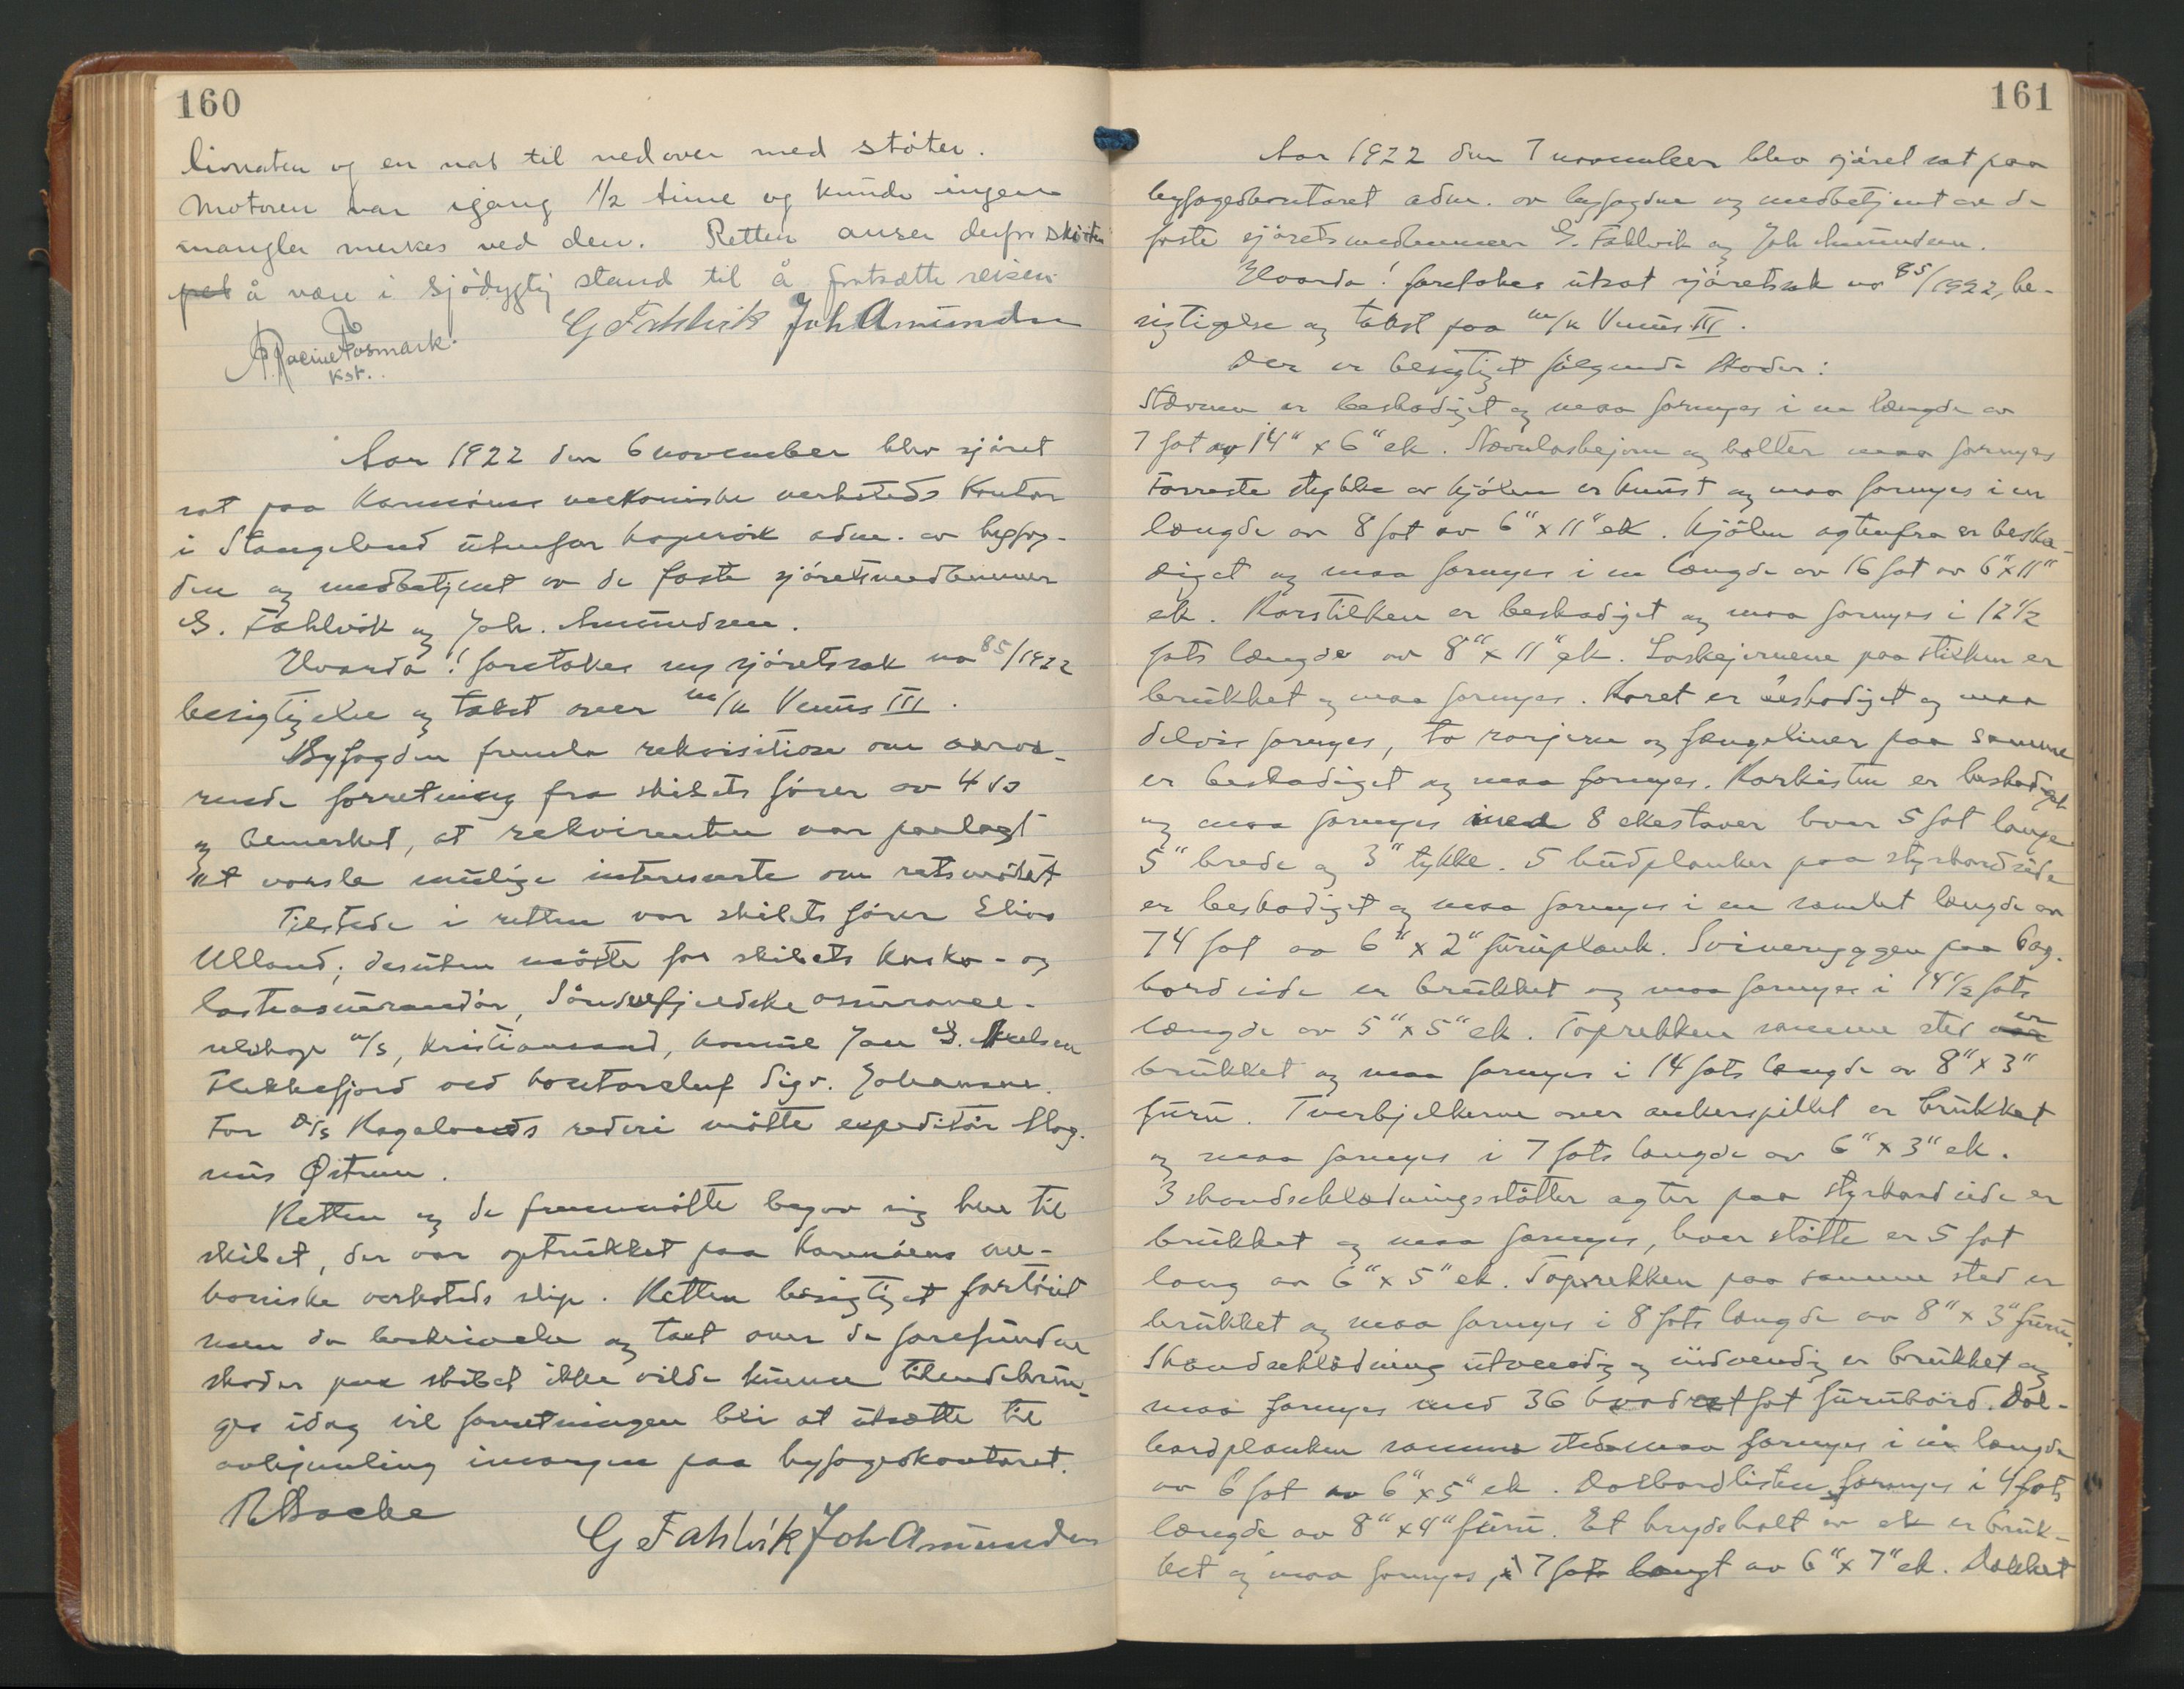 160
og en nat til nedover med støter.
Motoren var igang 1/2 time og kunde ingen
mangler merkes ved den. Retten anser derfor skøiten
å være i sjødygtig stand til å fortsætte reisen.
G Fahlvik Joh Amundsen
Kst.
Aar 1922 den 6 november blev sjøret
sat paa Karmøens mekaniske verksteds kontor
i Stangeland utenfor Kopervik adm. av byfog-
den og medbetjent av de faste sjøretsmedlemmer
G. Fahlvik og Joh. Amundsen.
Hvorda! foretokes ny sjøretssak no 85/1922
besigtigelse og takst over m/k Venus III.
Byfogden fremla rekvisition om nærvæ-
rende forretning fra skibets fører av 4 ds
og bemerket, at rekvirenten var paalagt
at varsle mulige interesserte om retsmøtet
Tilstede i retten var skibets fører Elias
Ulland; desuten møtte for skibets kasko- og
lasteassurandør, Søndenfjeldske assurance-
selskap a/s, Kristiansand, kommis Jon G. Axelsen
Flekkefjord ved kontorchef Sigv. Johansen.
For D/s Hagalands rederi møtte expeditør Mag-
nus Østrem.
Retten og de fremmøtte begav sig hen til
skibet, der var optrukket paa Karmøens me-
kaniske verksteds slip. Retten besigtiget fartøiet
men da beskrivelse og takst over de forefundne
skader paa skibet ikke vilde kunne tilendebrin-
ges idag vil forretningen bli at utsætte til
avhjemling imorgen paa byfogedkontoret.
R Bocke
G Fahlvik Joh Amundsen
161
Aar 1922 den 7 november blev sjøret sat paa
byfogedkontoret adm. av byfogden og medbetjent av de
faste sjøretsmedlemmer G. Fahlvik og Joh Amundsen.
Hvorda! foretokes utsat sjøretssak no 85/1922, be-
sigtigelse og takst paa m/k Venus III.
Der er besigtiget følgende skader:
Stævnen er beskadiget og maa fornyes i en længde av
7 fot av 14" x 6" ek. og bolter maa fornyes
Forreste stykke av kjølen er knust og maa fornyes i en
længde av 8 fot av 6" x 11" ek. Kjølen agtenfra er beska-
diget og maa fornyes i en længde av 16 fot av 6" x 11"
ek. Rorstilken er beskadiget og maa fornyes i 12 1/2
fots længde av 8" x 11" ek. Laskejernene paa stilken er
brukket og maa fornyes. Roret er beskadiget og maa
delvis fornyes, to rorjern og fængeliner paa samme
er beskadiget og maa fornyes. Rorkisten er beskadiget
og maa fornyes med 8 ekestaver hver 5 fot lange
5" brede og 3" tykke. 5 hudplanker paa styrbord side
er beskadiget og maa fornyes i en samlet længde av
74 fot av 6" x 2" furuplank. Svineryggen paa bag-
bord side er brukket og maa fornyes i 14 1/2 fots
længde av 5" x 5" ek. Toprekken samme sted er
brukket og maa fornyes i 14 fots længde av 8" x 3"
furu. Tverbjelkerne over ankerspillet er brukket
og maa fornyes i 7 fots længde av 6" x 3" ek.
3 skandseklædningsstøtter agter paa styrbord side er
brukket og maa fornyes, hver støtte er 5 fot
lang av 6" x 5" ek. Toprekken paa samme sted er
brukket og maa fornyes i 8 fots længde av 8" x 3" furu.
Skandseklædning utvendig og indvendig er brukket og
maa fornyes med 36 kvadratfot furubord. Dol-
bordplanken samme sted maa fornyes i en længde
av 6 fot av 6" x 5" ek. Dolbordlisten fornyes i 4 fots
længde av 8" x 4" furu. Et brydeholt av ek er bruk-
ket og maa fornyes, 7 fots langt av 6" x 7" ek. Dækket